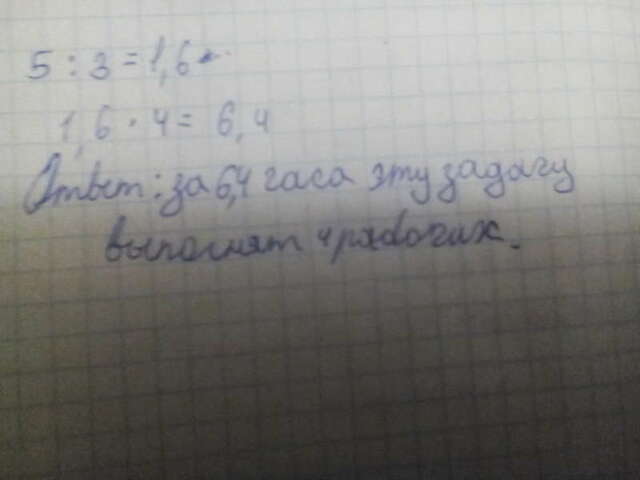 5 : 3 = 1,6
1,6 · 4 = 6,4
Ответ: за 6,4 часа эту задачу
выполнят 4 рабочих.